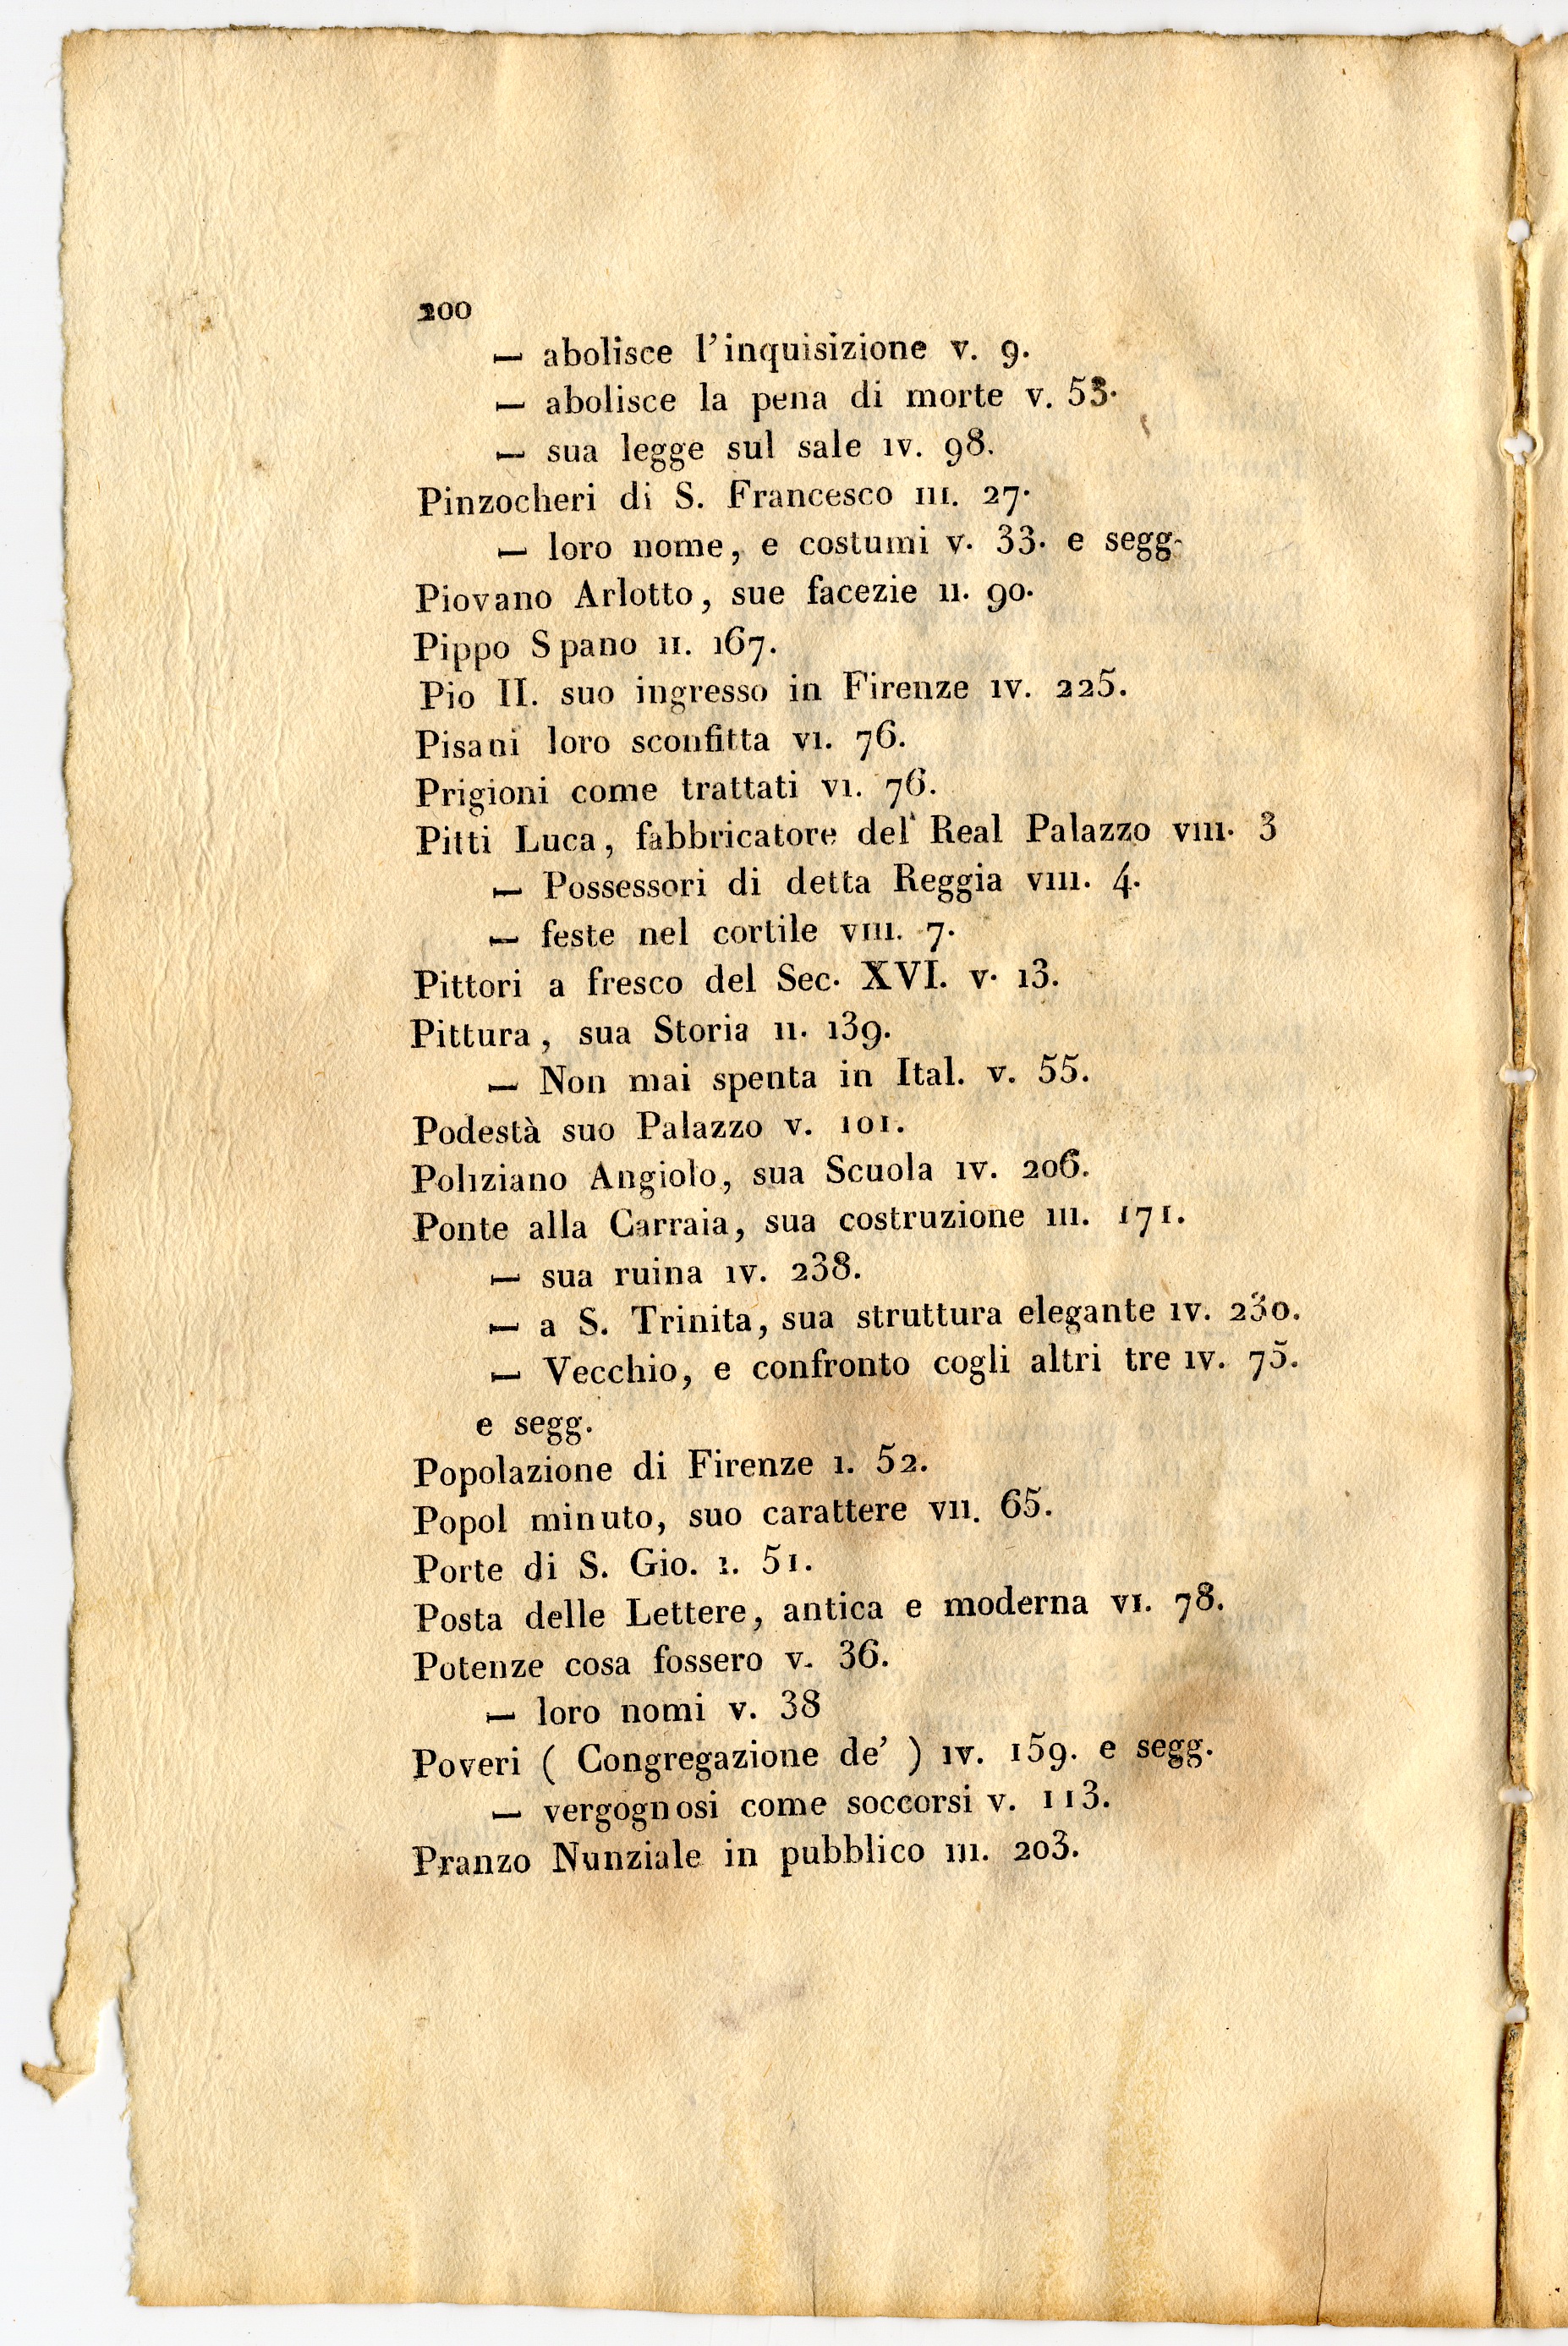 200
— abolisce l'inquisizione v. 9.
— abolisce la pena di morte v. 53.
— sua legge sul sale iv. 98.
Pinzocheri di S. Francesco iii. 27.
— loro nome, e costumi v. 33. e segg.
Piovano Arlotto, sue facezie ii. 90.
Pippo Spano ii. 167.
Pio II. suo ingresso in Firenze iv. 225.
Pisani loro sconfitta vi. 76.
Prigioni come trattati vi. 76.
Pitti Luca, fabbricatore del Real Palazzo viii. 3
— Possessori di detta Reggia viii. 4.
— feste nel cortile viii. 7.
Pittori a fresco del Sec. XVI. v. 13.
Pittura, sua Storia ii. 139.
— Non mai spenta in Ital. v. 55.
Podestà suo Palazzo v. 101.
Poliziano Angiolo, sua Scuola iv. 206.
Ponte alla Carraia, sua costruzione iii. 171.
— sua ruina iv. 238.
— a S. Trinita, sua struttura elegante iv. 230.
— Vecchio, e confronto cogli altri tre iv. 75.
e segg.
Popolazione di Firenze i. 52.
Popol minuto, suo carattere vii. 65.
Porte di S. Gio. i. 51.
Posta delle Lettere, antica e moderna vi. 78.
Potenze cosa fossero v. 36.
— loro nomi v. 38
Poveri ( Congregazione de' ) iv. 159. e segg.
— vergognosi come soccorsi v. 113.
Pranzo Nunziale in pubblico iii. 203.